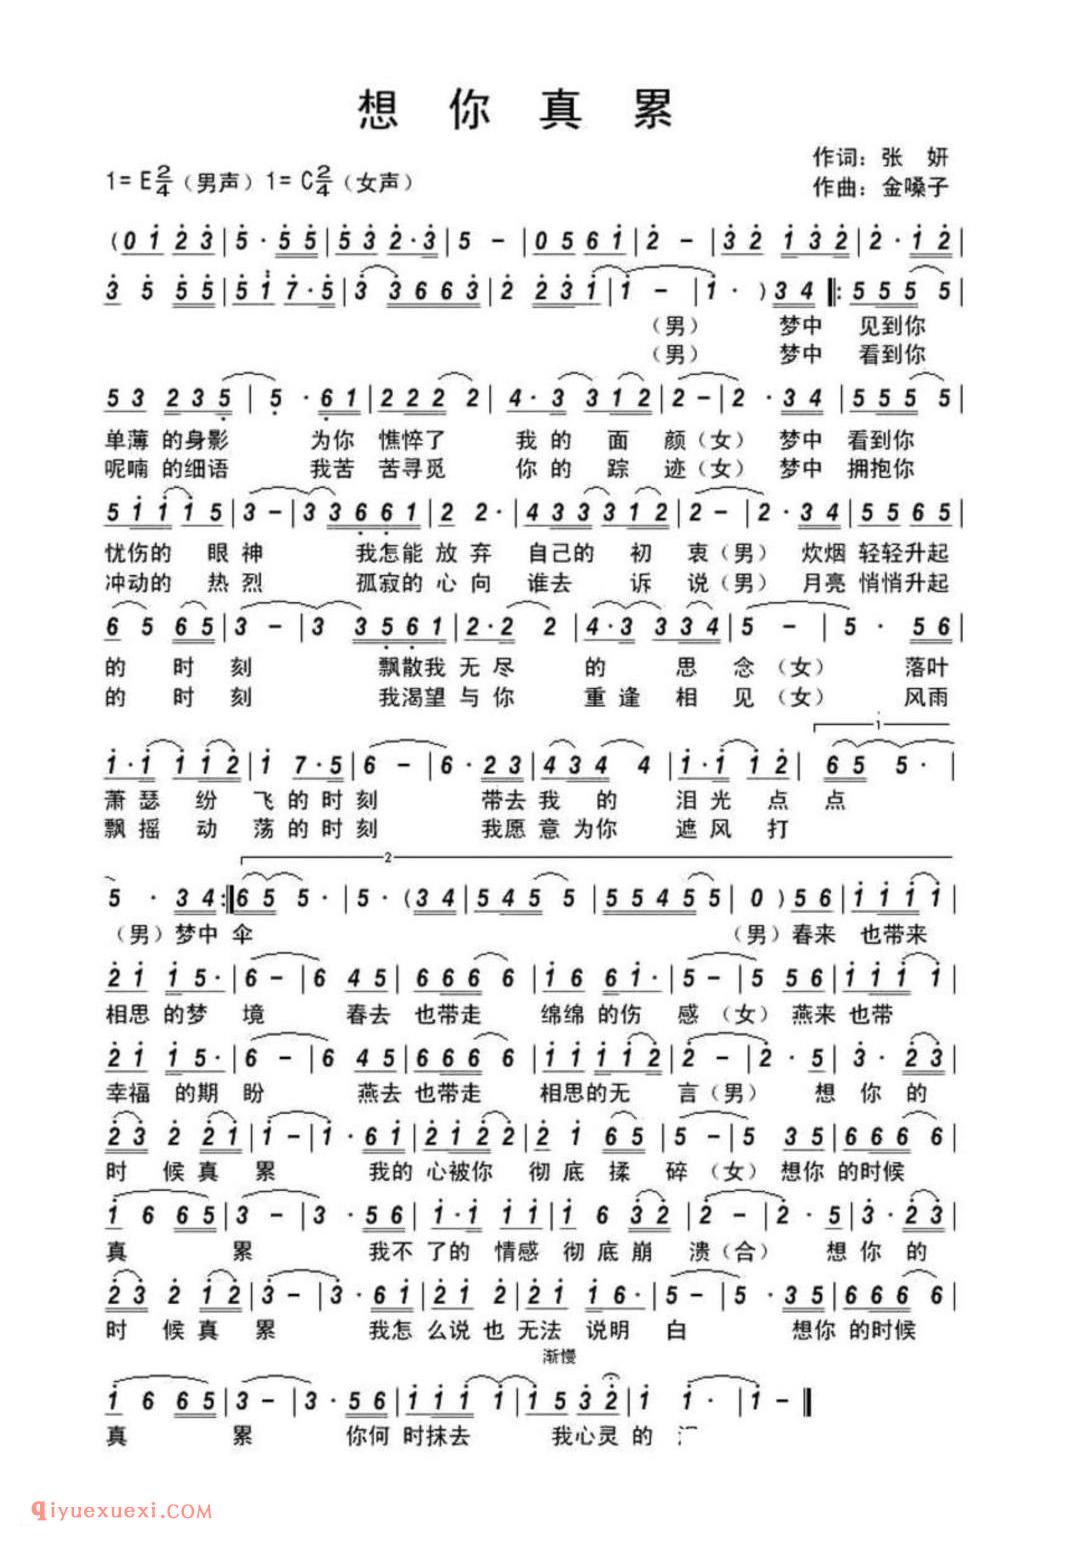 想你真累
作词：张 妍
1=E2/4（男声）1=C2/4（女声）
作曲：金嗓子
(0 1 2 3|5· 5 5|5 3 2·3|5 -|0 5 6 1|2 -|3 2 1 3 2|2· 1 2|
3 5 5 5|5 1 7·5|3 3 6 6 3|2 2 3 1|1 -|1· )3 4‖:5 5 5 5 5|
（男） 梦中 见到你
（男） 梦中 看到你
5 3 2 3 5|5· 6 1|2 2 2 2 2|4· 3 3 1 2|2 -|2· 3 4|5 5 5 5 5|
单薄 的身影 为你 憔悴了 我 的 面 颜（女） 梦中 看到你
呢喃 的细语 我苦 苦寻觅 你 的 踪 迹（女） 梦中 拥抱你
5 1 1 1 5|3 -|3 3 6 6 1|2 2·|4 3 3 3 1 2|2 -|2· 3 4|5 5 6 5|
忧伤的 眼 神 我怎能 放 弃 自己的 初 衷（男） 炊烟 轻轻升起
冲动的 热 烈 孤寂的 心 向 谁去 诉 说（男） 月亮 悄悄升起
6 5 6 5|3 -|3 3 5 6 1|2·2 2|4·3 3 3 4|5 -|5· 5 6|
的 时 刻 飘散我 无 尽 的 思 念（女） 落叶
的 时 刻 我渴望 与 你 重 逢 相 见（女） 风雨
1·1 1 1 2|1 7·5|6 -|6· 2 3|4 3 4 4|1·1 1 2|6 5 5·|
1
萧 瑟 纷 飞 的 时 刻 带去 我 的 泪 光 点 点
飘 摇 动 荡 的 时 刻 我愿 意 为你 遮 风 打
2
5 · 3 4:‖6 5 5·|5·(3 4|5 4 5 5 5|5 5 5 4 5 5|0 )5 6|1 1 1 1|
（男）梦中 伞 （男）春来 也带来
2 1 1 5·|6 -|6 4 5|6 6 6 6|1 6 6 1·|5 -|5 5 6|1 1 1 1|
相思 的梦 境 春去 也带走 绵绵 的伤 感（女）燕来 也带
2 1 1 5·|6 -|6 4 5|6 6 6 6|1 1 1 1 2|2 -|2· 5|3· 2 3|
幸福 的期 盼 燕去 也带走 相思的无 言（男） 想 你 的
2 3 2 2 1|1 -|1· 6 1|2 1 2 2|2 1 6 5|5 -|5 3 5|6 6 6 6|
时 候 真 累 我的 心被你 彻 底 揉 碎（女） 想你 的时候
1 6 6 5|3 -|3 · 5 6|1·1 1 1|1 6 3 2|2 -|2· 5|3· 2 3|
真 累 我不 了 的 情感 彻 底 崩 溃（合） 想 你 的
2 3 2 1 2|3 -|3· 6 1|2 1 2|2 1 1 6·|5 -|5· 3 5|6 6 6 6|
时 候 真 累 我怎 么 说 也 无法 说明 白 想你 的时候
渐慢
1 6 6 5|3 -|3· 5 6|1 1 1 1|1 5 3 2|1 1·|1 -‖
真 累 你何 时抹去 我心灵 的
qiyuexuexi.COM